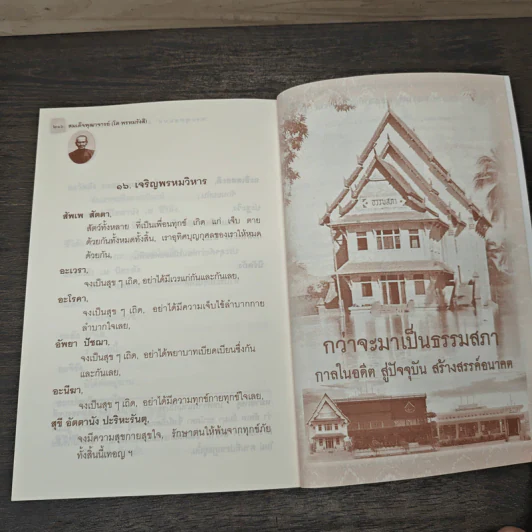 สมเด็จพุฒาจารย์ (โต พรหมรังสี)
๑๖. เจริญพรหมวิหาร
สัพเพ สัตตา,
สัตว์ทั้งหลาย ที่เป็นเพื่อนทุกข์ เกิด แก่ เจ็บ ตาย
ด้วยกันทั้งหมดทั้งสิ้น, เราอุทิศบุญกุศลของเราให้หมด
ด้วยกัน.
อะเวรา,
จงเป็นสุข ๆ เถิด, อย่าได้มีเวรแก่กันและกันเลย,
อะโรคา,
จงเป็นสุข ๆ เถิด, อย่าได้มีความเจ็บไข้ลำบากกาย
ลำบากใจเลย,
อัพยา ปัชฌา,
จงเป็นสุข ๆ เถิด, อย่าได้พยาบาทเบียดเบียนซึ่งกัน
และกันเลย,
อะนีฆา,
จงเป็นสุข ๆ เถิด, อย่าได้มีความทุกข์กายทุกข์ใจเลย,
สุขี อัตตานัง ปะริหะรันตุ,
จงมีความสุขกายสุขใจ, รักษาตนให้พ้นจากทุกข์ภัย
ทั้งสิ้นนี้เทอญ ฯ
ธรรมสภา
กว่าจะมาเป็นธรรมสภา
กาลในอดีต สู่ปัจจุบัน สร้างสรรค์อนาคต